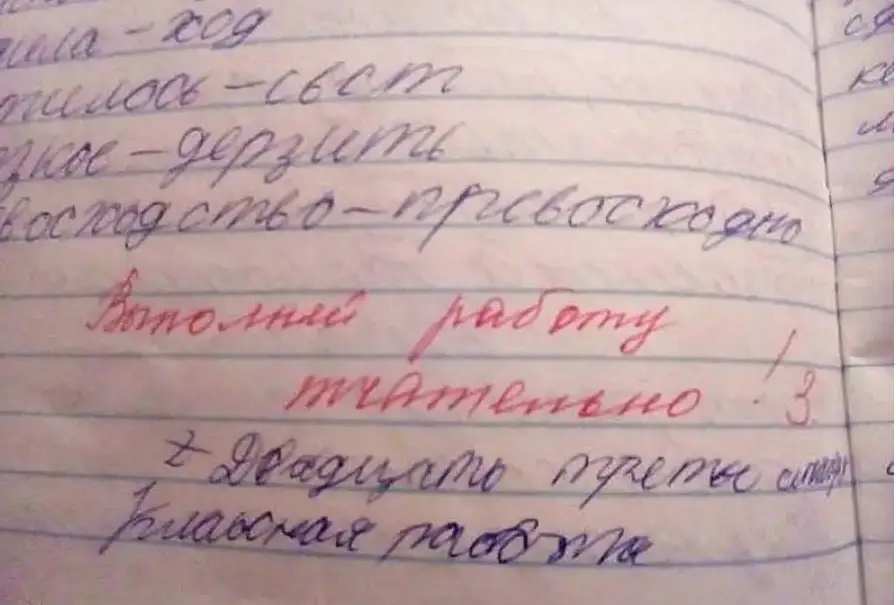 ход
свет
дерзить
восходство – превосходно
Выполняй работу
тчательно! 3.
Двадцать третье
Классная работа